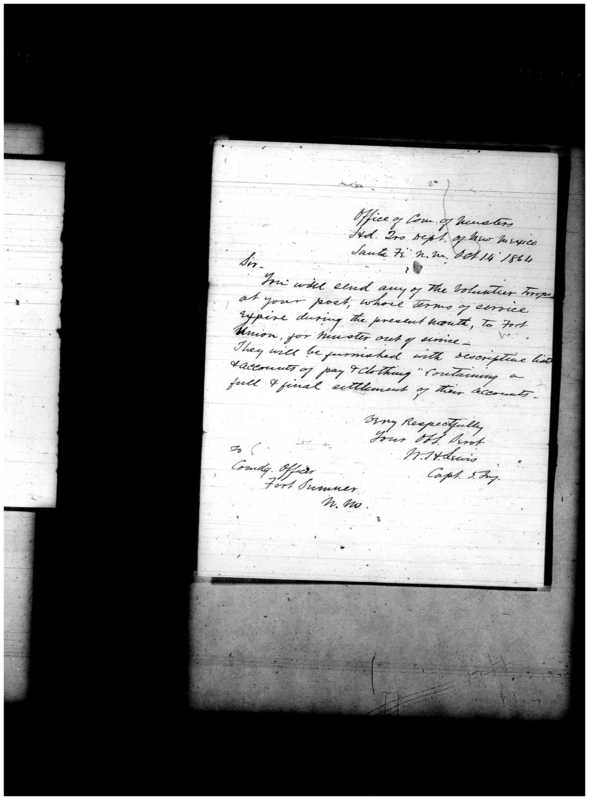 Office of Com. of Musters
Hd. Qrs. Dept. of New Mexico
Santa Fé N. M. Oct 14 1864
Sir.
You will send any of the Volunteer troops
at your post, whose terms of service
expire during the present month, to Fort
Union, for muster out of service_
They will be furnished with descriptive lists
& accounts of pay & clothing" containing a
full & final settlement of their accounts_
Very Respectfully
Your Obt. Servt
W. H. Lewis
Capt. 5. Inf.
To
Comdg. Officer
Fort Sumner
N. Mo.